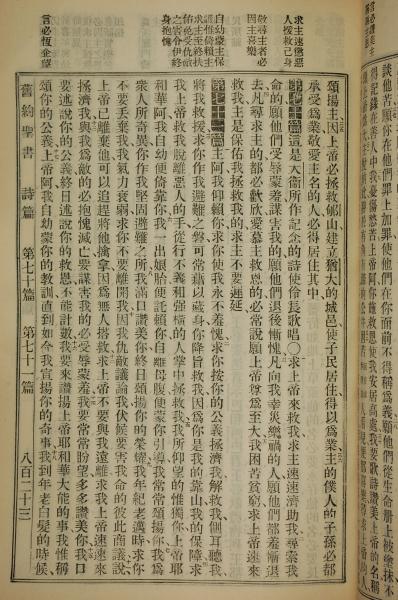 談他苦惱你在他們罪上加罪願他們在你面前不得稱為義願他們從生命册上被塗抹不
得記錄在善人中我憂傷愁苦上帝阿你施救恩使我安居高處我要歌詩讚美上帝的名稱
求主速懲惡
人援救己身
敬尋主者必
因主喜樂
自幼蒙主保
護惟倚賴主
求主至終扶
佑免受仇敵
之害令伊終
身抱愧
言必恆企望
頌揚主因上帝必拯救郇山建立猶大的城邑使子民居住得以為業主的僕人的子孫必都
承受為業敬愛主名的人必得居住其中
第七十篇這是大衛所作記念的詩使伶長歌唱求上帝來救我求主速速濟助我尋索我
命的願他們受辱蒙羞謀害我的願他們退後慚愧凡向我幸災樂禍的人願他們都羞漸退
去凡尋求主的都必歡欣愛慕主救恩的必常說願上帝尊為至大我困苦貧窮求上帝速來
救我主是保佑我拯救我的求主不要遲延
第七十一篇主阿我仰賴你求你使我永不羞愧求你按你的公義拯濟我解救我側耳聽我
將我救援求你作我避難之磐可常藉以藏身你降旨救我因為你是我的靠山我的保障求
我上帝救我脫離惡人的手從行不義和強橫的人掌中拯救我我所仰望的惟獨你上帝耶
和華阿我自幼便倚靠你我一出娘胎便託賴你自離母腹便蒙你引導我常常頌揚你我為
衆人所奇異你作我堅固避難之所我滿口讚美你終日頌揚你的榮耀我年紀老邁時求你
不要丟棄我我氣力衰弱求你不要離開我因我仇敵議論我伏候要害我命的彼此商議說
上帝已離棄他可以追趕將他擒拿因為無人搭救求上帝不要與我遠離求我上帝速速來
拯濟我與我為敵的必抱愧滅亡要謀害我的必受辱蒙羞我要常常盼望多多讚美你我口
要述說你的公義終日述說你的救恩不能計數我要來讚揚上帝耶和華大能的事我惟稱
頌你的公義上帝阿我自幼蒙你的教訓直到如今我宣揚你的奇事我到年老白髮的時候
舊約聖書 詩篇 第七十篇 第七十一篇 八百二十三